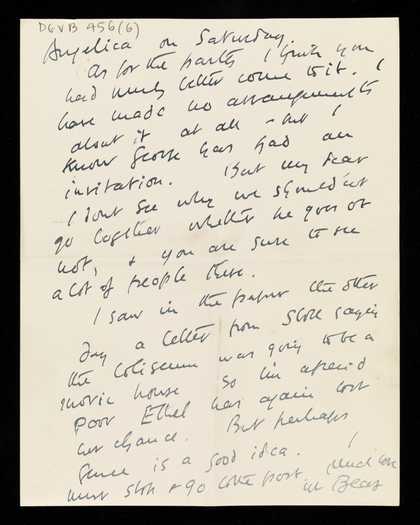 DGVB 456(6)
Angelica on Saturday.
As for the party I think you
had much better come to it. I
have made no arrangements
about it at all – but I
know George has had an
invitation. But my dear
I dont see why we should'nt
go together whether he goes or
not, & you are sure to see
a lot of people there.
I saw in the paper the other
day a letter from Stoll saying
the Coliseum was going to be a
movie house so I'm afraid
poor Ethel has again lost
her chance. But perhaps
is a good idea. I
must stop & go to the post. Much love
Bear